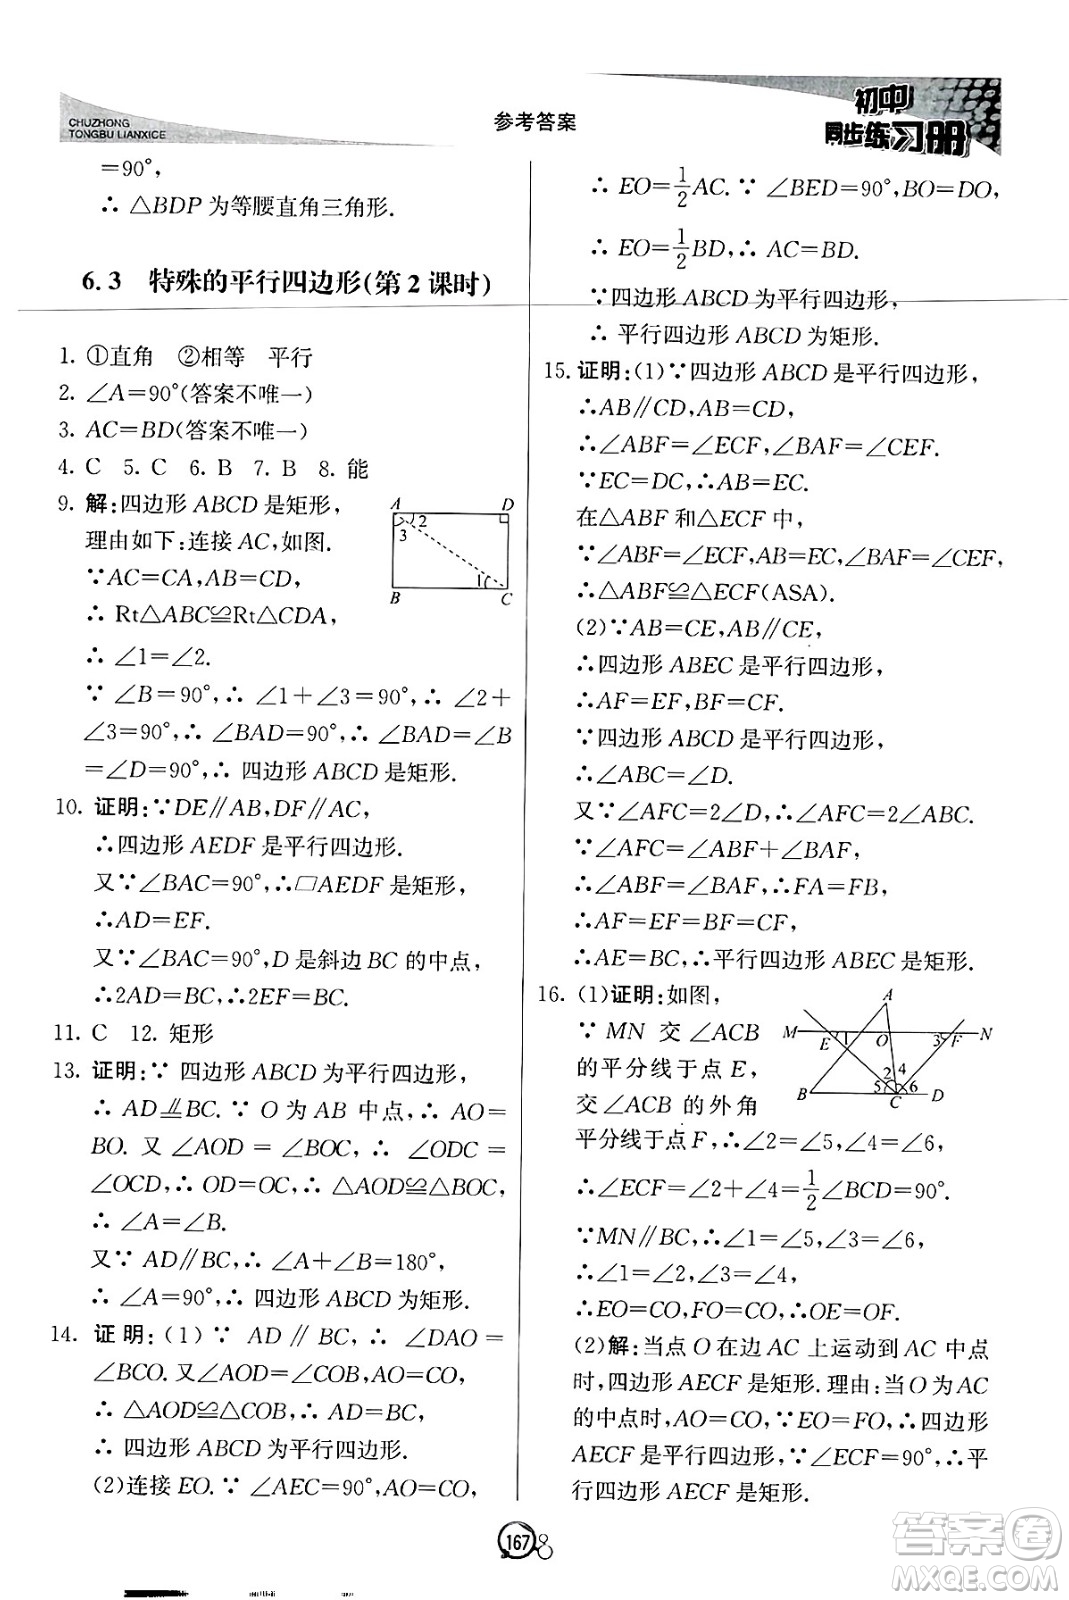 CHUZHONG
TONGBU LIANXICE
参考答案
初中
同步练习册
=90°,
∴ △BDP 为等腰直角三角形.
6.3 特殊的平行四边形(第2课时)
1. ①直角 ②相等 平行
2. ∠A=90°(答案不唯一)
3. AC=BD(答案不唯一)
4. C 5. C 6. B 7. B 8. 能
9. 解:四边形 ABCD 是矩形,
理由如下:连接 AC,如图.
∵AC=CA,AB=CD,
∴ Rt△ABC≌Rt△CDA,
∴ ∠1=∠2.
∵ ∠B=90°,∴ ∠1+∠3=90°,∴ ∠2+
∠3=90°,∴ ∠BAD=90°,∴ ∠BAD=∠B
=∠D=90°,∴ 四边形 ABCD 是矩形.
A D
2
3
1
B C
10. 证明:∵DE∥AB,DF∥AC,
∴四边形 AEDF 是平行四边形.
又∵∠BAC=90°,∴▱AEDF 是矩形,
∴AD=EF.
又∵∠BAC=90°,D 是斜边 BC 的中点,
∴2AD=BC,∴2EF=BC.
11. C 12. 矩形
13. 证明:∵ 四边形 ABCD 为平行四边形,
∴ AD∥BC. ∵ O 为 AB 中点,∴ AO=
BO. 又 ∠AOD = ∠BOC, ∴ ∠ODC =
∠OCD,∴ OD=OC,∴ △AOD≌△BOC,
∴ ∠A=∠B.
又∵ AD∥BC,∴ ∠A+∠B=180°,
∴ ∠A=90°,∴ 四边形 ABCD 为矩形.
14. 证明:(1) ∵ AD∥BC, ∴ ∠DAO =
∠BCO. 又∠AOD=∠COB,AO=CO,
∴ △AOD≌△COB,∴ AD=BC,
∴ 四边形 ABCD 为平行四边形.
(2)连接 EO. ∵ ∠AEC=90°,AO=CO,
∴ EO=1/2AC. ∵ ∠BED=90°,BO=DO,
∴ EO=1/2BD,∴ AC=BD.
∵四边形 ABCD 为平行四边形,
∴ 平行四边形 ABCD 为矩形.
15. 证明:(1)∵四边形 ABCD 是平行四边形,
∴AB∥CD,AB=CD,
∴∠ABF=∠ECF,∠BAF=∠CEF.
∵EC=DC,∴AB=EC.
在△ABF 和△ECF 中,
∵∠ABF=∠ECF,AB=EC,∠BAF=∠CEF,
∴△ABF≌△ECF(ASA).
(2)∵AB=CE,AB∥CE,
∴四边形 ABEC 是平行四边形,
∴AF=EF,BF=CF.
∵四边形 ABCD 是平行四边形,
∴∠ABC=∠D.
又∵∠AFC=2∠D,∴∠AFC=2∠ABC.
∵∠AFC=∠ABF+∠BAF,
∴∠ABF=∠BAF,∴FA=FB,
∴AF=EF=BF=CF,
∴AE=BC,∴平行四边形 ABEC 是矩形.
16. (1)证明:如图,
∵ MN 交 ∠ACB
的平分线于点 E,
交 ∠ACB 的外角
平分线于点 F,∴∠2=∠5,∠4=∠6,
A
M E 1 O 3 F N
2 4
5 6
B C D
∴∠ECF=∠2+∠4=1/2∠BCD=90°.
∵MN∥BC,∴∠1=∠5,∠3=∠6,
∴∠1=∠2,∠3=∠4,
∴EO=CO,FO=CO,∴OE=OF.
(2)解:当点 O 在边 AC 上运动到 AC 中点
时,四边形 AECF 是矩形.理由:当O为AC
的中点时,AO=CO,∵EO=FO,∴四边形
AECF 是平行四边形,∵∠ECF=90°,∴平
行四边形 AECF 是矩形.
167
答案卷
MXQE.COM